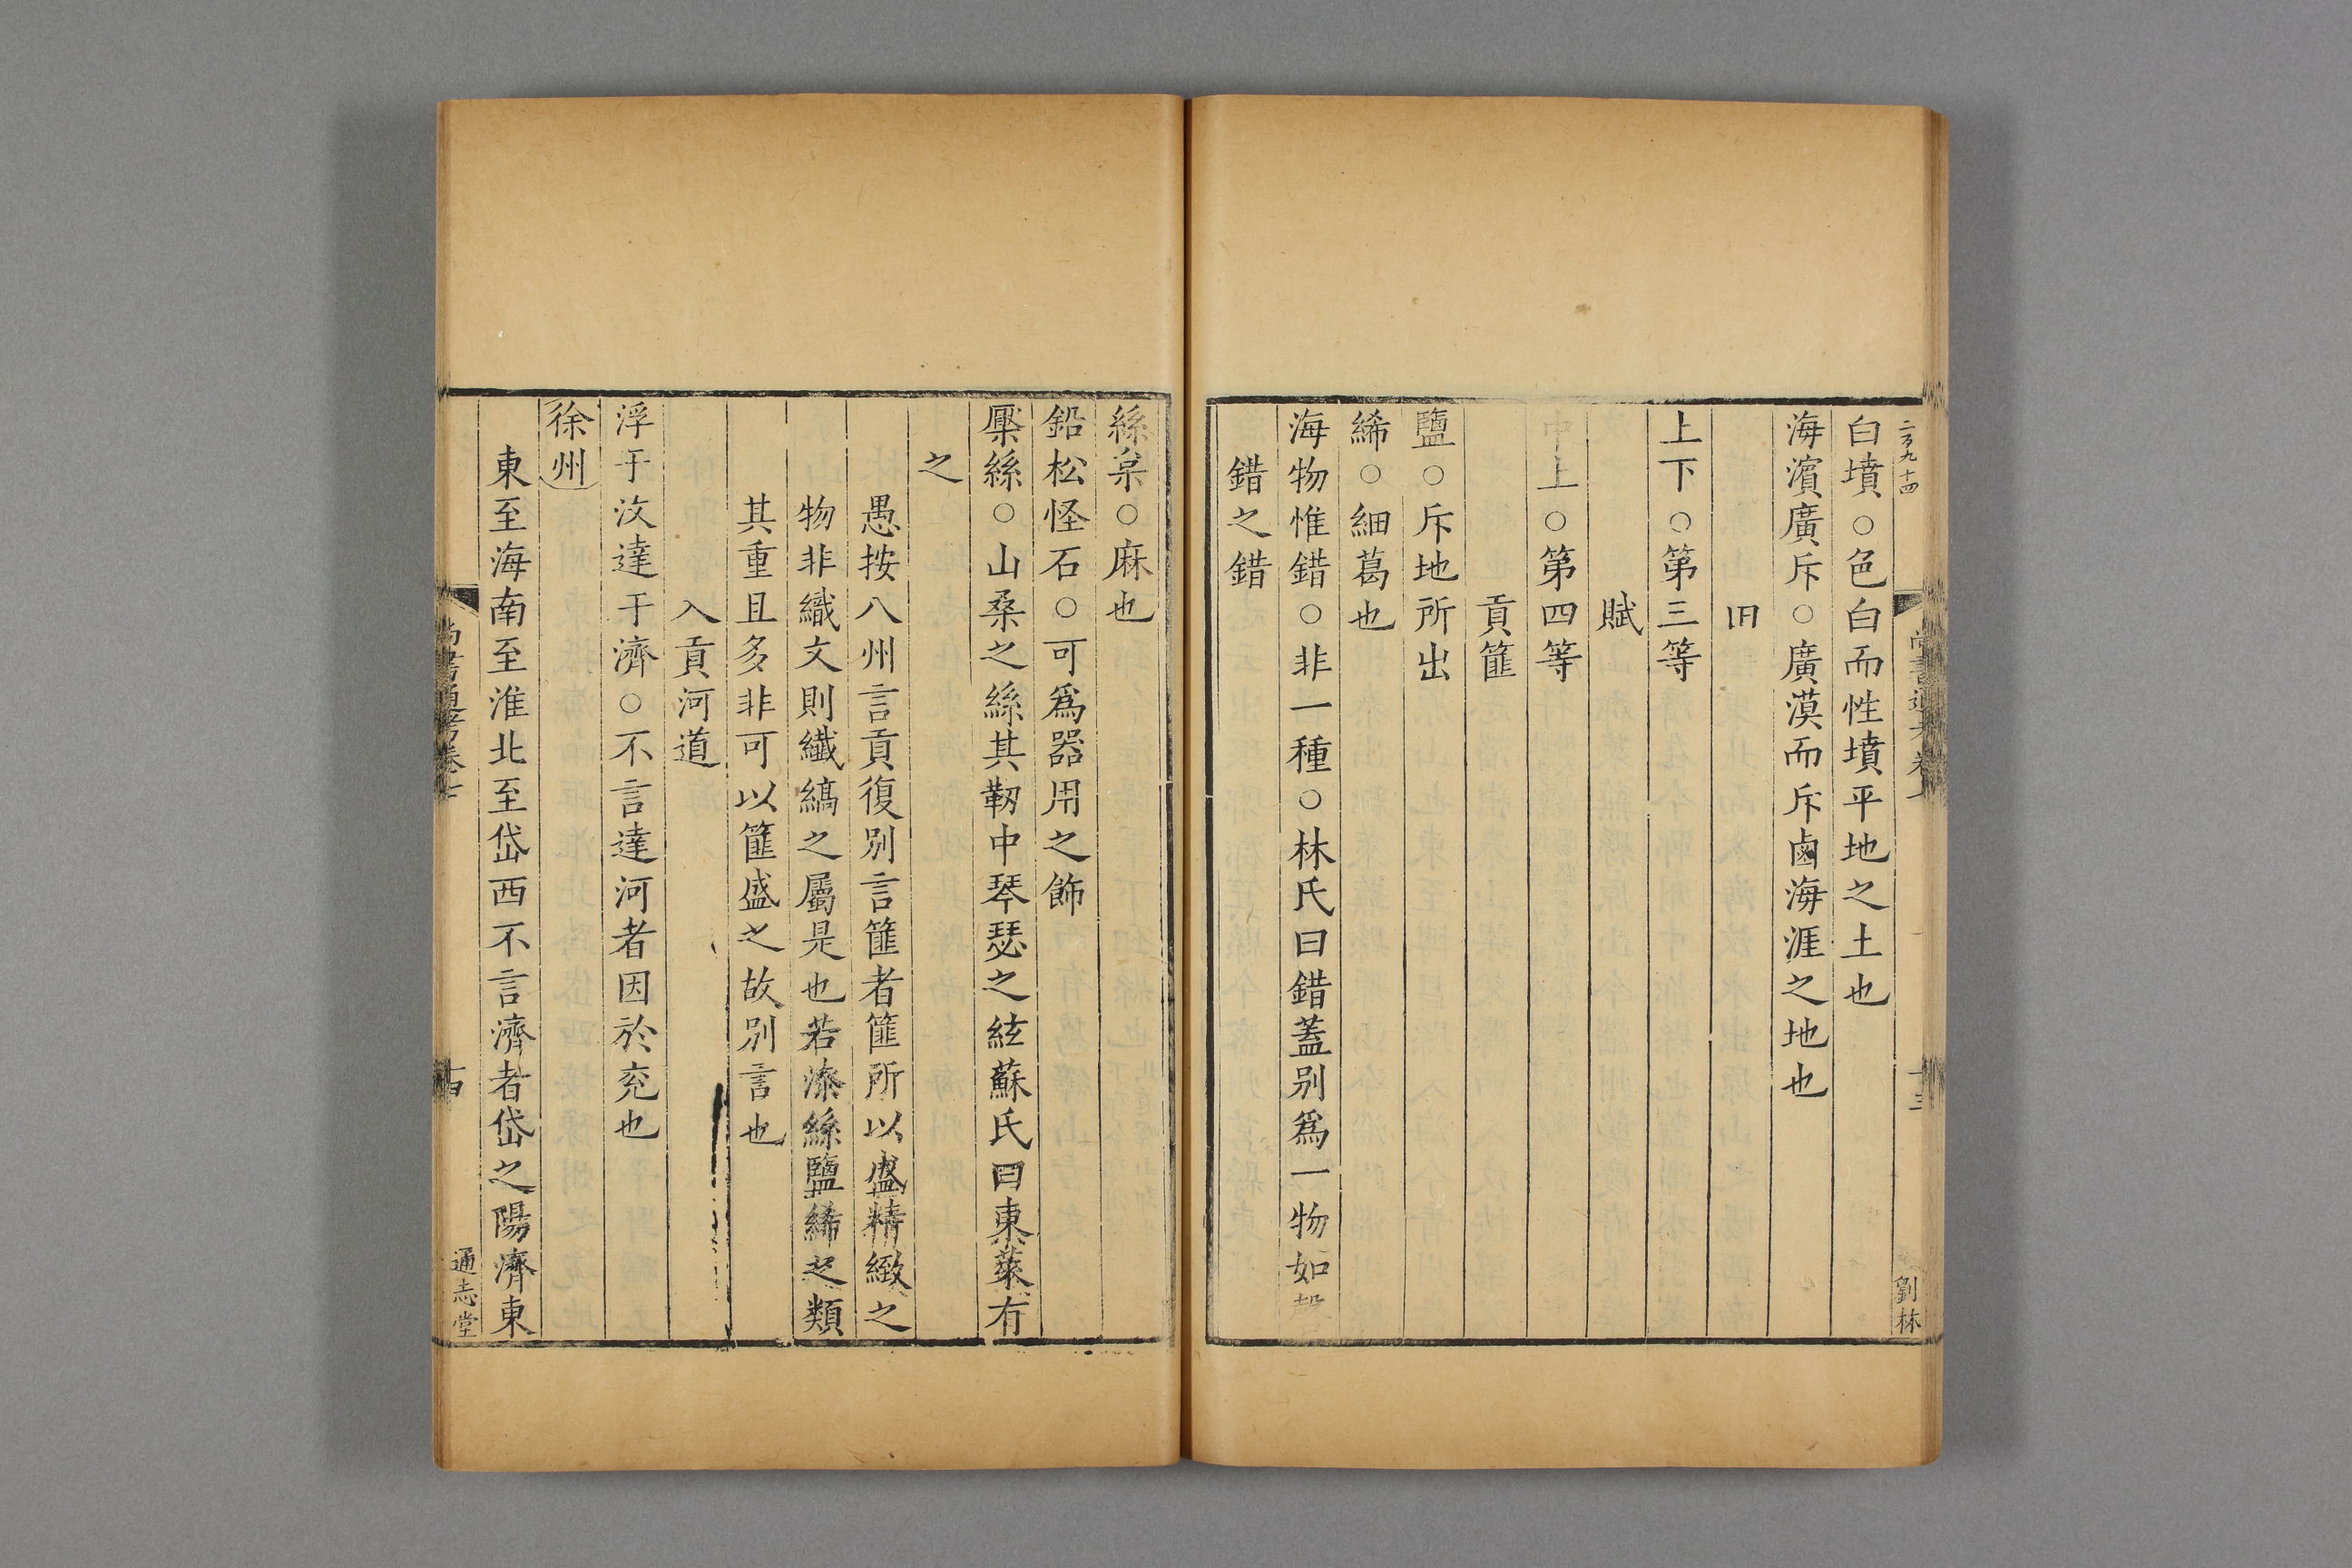 二百九十四
尚書通考卷七
十三
劉林
白墳○色白而性墳平地之土也
海濱廣斥○廣漠而斥鹵海涯之地也
田
上下○第三等
賦
中上○第四等
貢篚
鹽○斥地所出
絺○細葛也
海物惟錯○非一種○林氏曰錯蓋别爲一物如磬
錯之錯
絲枲○麻也
鉛松怪石○可爲器用之飾
檿絲○山桑之絲其韌中琴瑟之絃蘇氏曰東萊有
之
愚按八州言貢復别言篚者篚所以盛精緻之
物非織文則纖縞之屬是也若漆絲鹽絺之類
其重且多非可以篚盛之故别言也
入貢河道
浮于汶達于濟○不言達河者因於兖也
徐州
東至海南至淮北至岱西不言濟者岱之陽濟東
尚書通考卷七
十四
通志堂